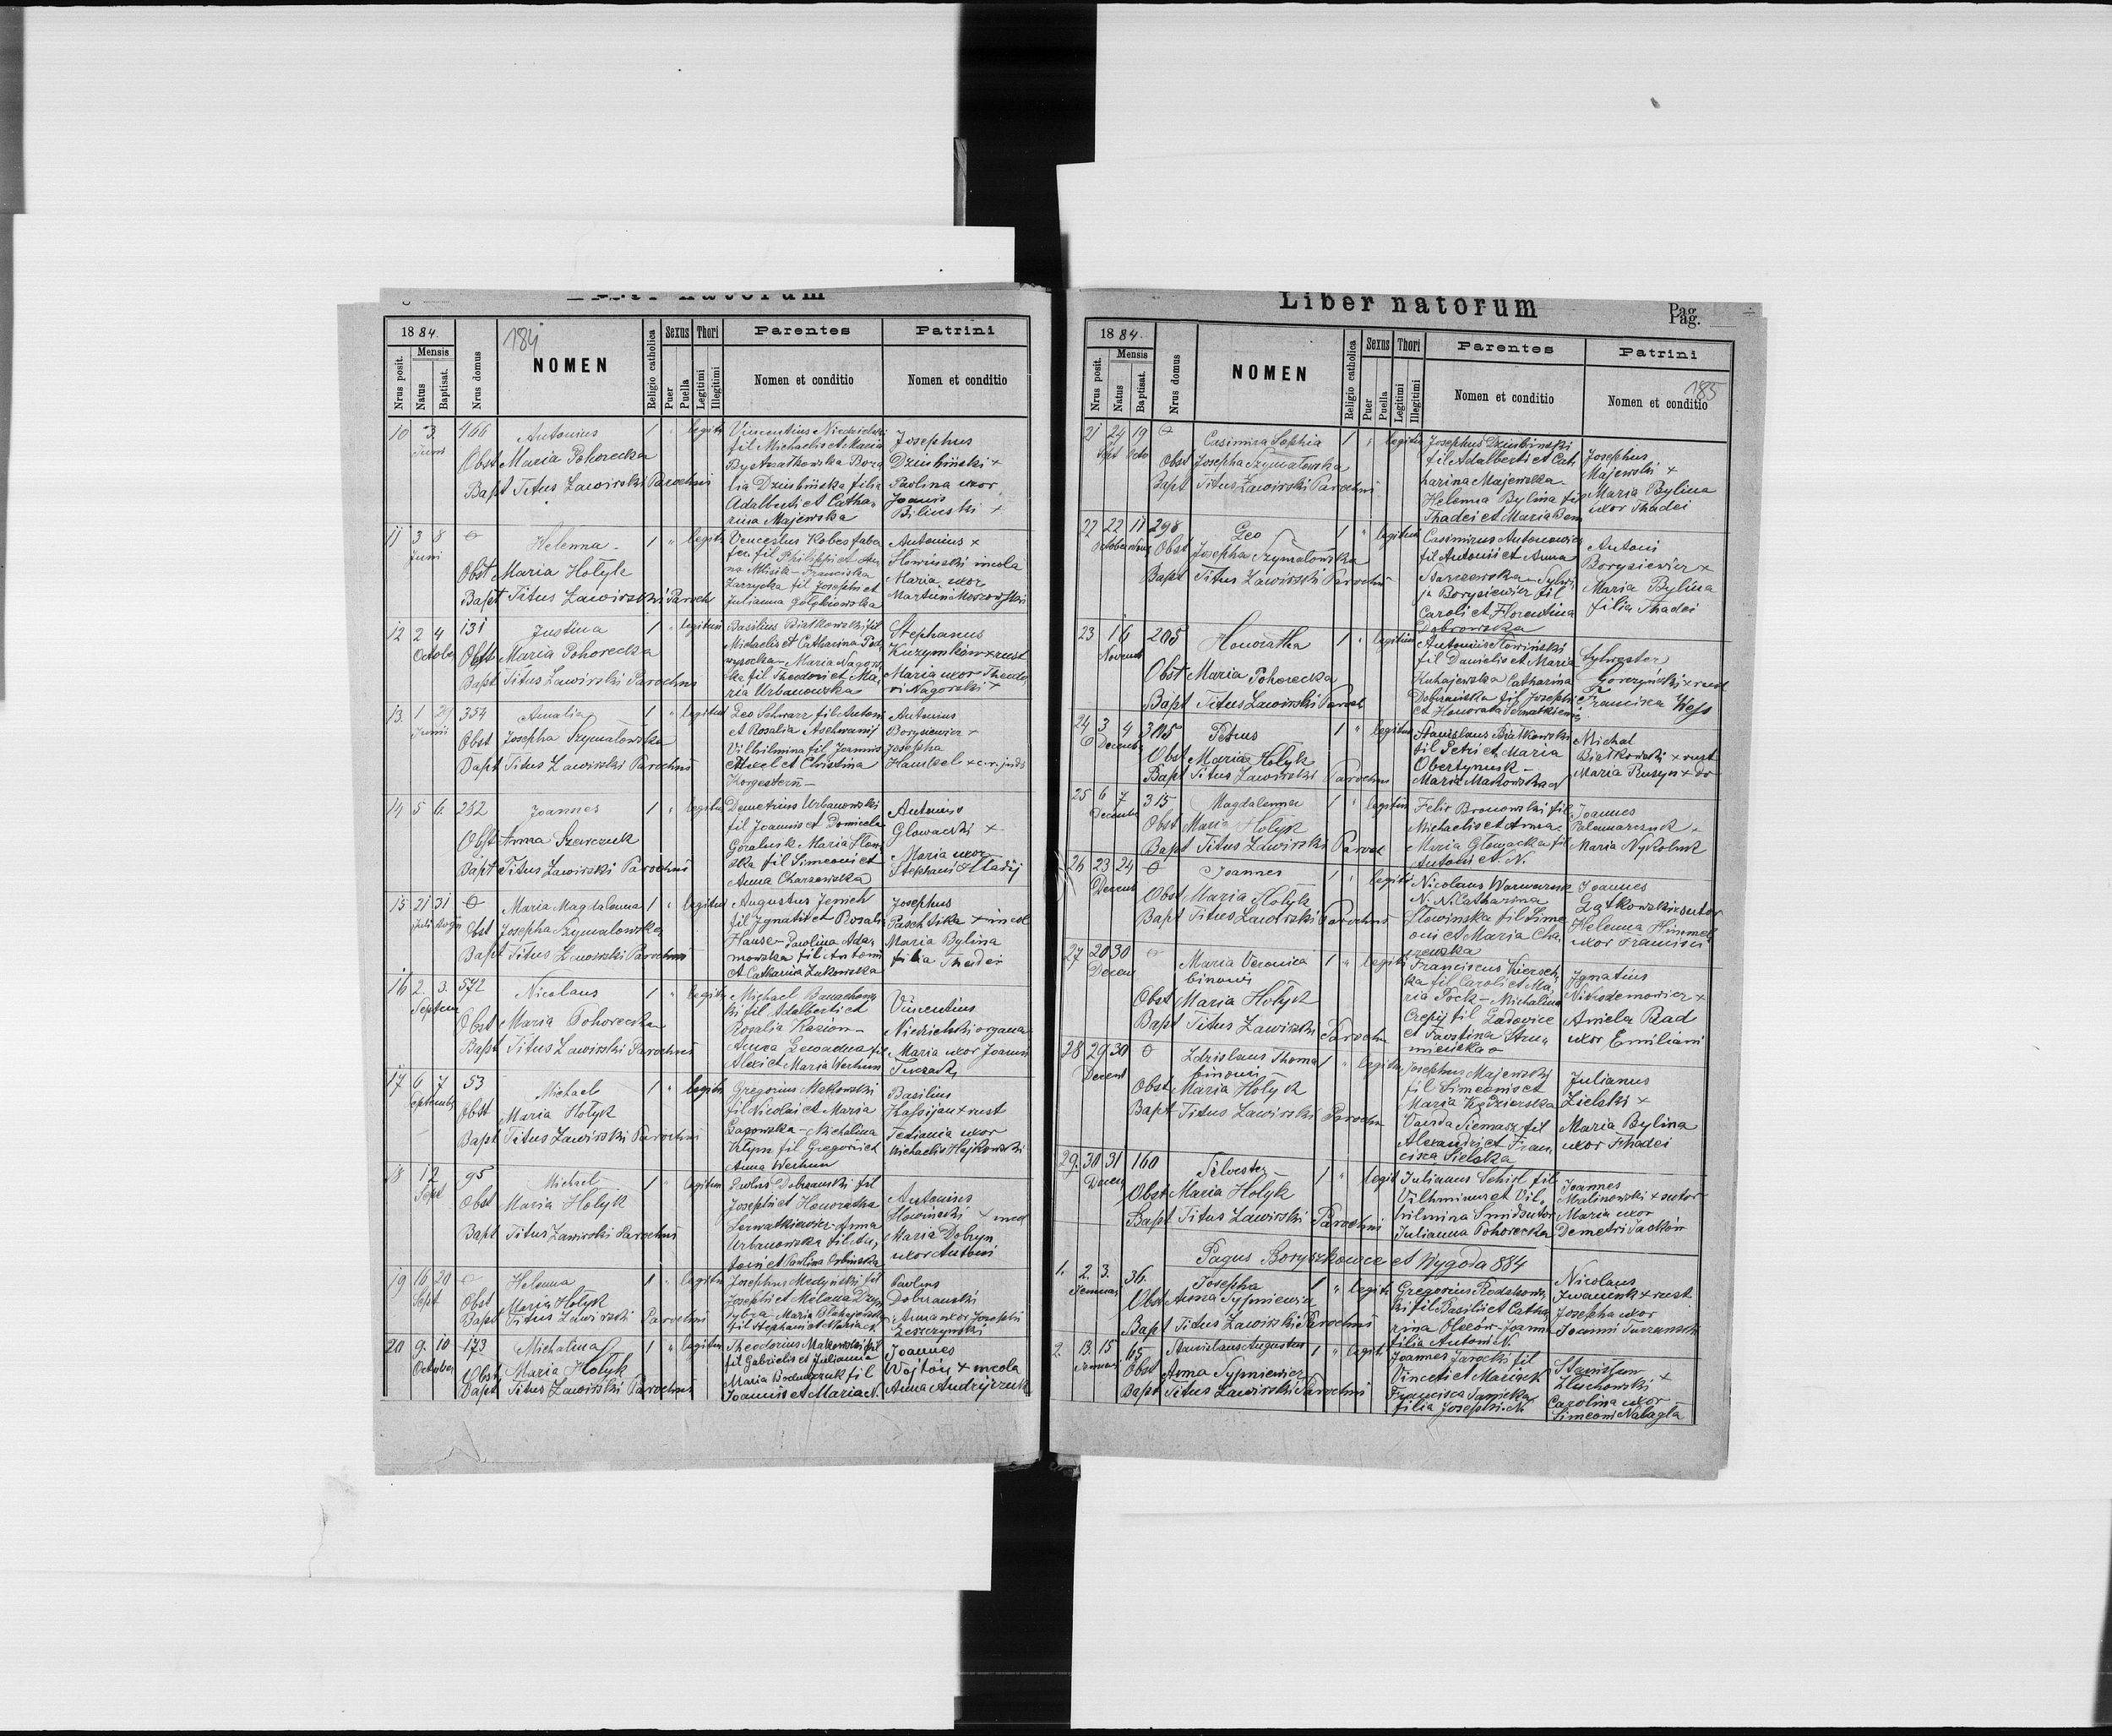 Liber natorum
1884.
184
Nrus posit.
Mensis
Natus
Baptisat.
Nrus domus
NOMEN
Religio catholica
Sexus
Puer
Puella
Thori
Legitimi
Illegitimi
Parentes
Nomen et conditio
Patrini
Nomen et conditio
10 3. Junii 466 Antonius 1 " legiti
Obst Maria Pohorecka
Bapt Titus Zawirski Parochus
Vincentius Niedzielski
fil Michaelis et Maria
Bystrzatkowska Roza
lia Dziubińska filia
Adalberti et Catha-
rina Majewska
Josephus
Dziubiński +
Paolina uxor
Joanis
Bilinski +
11 3 8 Juni Helenna - 1 " legiti
Obst Maria Hołyk
Bapt Titus Zawirski Paroch
Venceslus Kobes faba
fer. fil Philippi et An
na Misik - Franciska
Zarzycka fil Josephi et
Julianna Gołębiowska
Antonius +
Słowiński incola
Maria uxor
Martini Moszowski
12 2 4 October 131 Justina 1 " legitimi
Obst Maria Pohorecka
Bapt Titus Zawirski Parochus
Basilius Białkowski fil
Michaelis et Catharina Pod
wysocka - Maria Nagors
ka fil Theodori et Ma-
ria Urbanowska
Stephanus
Kuzymków + rust
Maria uxor Theodo-
ri Nagorski +
13. 1 29 Junii 354 Amalia 1 " legitimi
Obst Josepha Szymałowska
Bapt Titus Zawirski Parochus
Leo Schwarz fil Antoni
et Rosalia Aschwanij
Vilhilmina fil Joannis
et Christina
Antonius
Borysiewicz +
Josepha
14 5 6. 252 Joannes 1 " legitimi
Obst Anna Szewczuk
Bapt Titus Zawirski Parochus
Demetrius Urbanowski
fil Joannis et Domicela
Góraluk Maria Słow
ska fil Simeoni et
Anna Charzewska
Antonius
Glowacki +
Maria uxor
Stephani Hładij
15 21 31 Juli Augu Maria Magdalenna 1 " legitimi
Obst Josepha Szymałowska
Bapt Titus Zawirski Parochus
Augustus Jenich
fil Ignatii et Rosalia
Hause - Paolina Ada-
mowska fil Antoni
et Catharina Zukowska
Josephus
Paschtika + incol
Maria Bylina
filia Thadei
16 2. 3. Septem 572 Nicolaus 1 " legiti
Obst Maria Pohorecka
Bapt Titus Zawirski Parochus
Michael Banachows
ki fil Adalberti et
Rosalia Kazion -
Alexi et Maria Werhun
Vincentius
Niedzielski organa
Maria uxor Joannis
17 6 7 Septembr 53 Michael 1 " legiti
Obst Maria Hołyk
Bapt Titus Zawirski Parochus
Gregorius Makowski
fil Nicolai et Maria
Bagowska - Michalina
fil Gregorii et
Anna Werhun
Basilius
Kassijan + rust
Tecianna uxor
Michaelis Hajkowski
18 12 Sept 95 Michael 1 " legitim
Obst Maria Hołyk
Bapt Titus Zawirski Parochus
Paolus Dobrzanski fil
Josephi et Honoratha
Serwatkiewicz - Anna
Urbanowska fil An-
toni et Paulina Orlinska
Antonius
Słowinski + incol
Maria Dobryn
uxor Antoni
19 16 20 Sept Helenna 1 " legitim
Obst Maria Hołyk
Bapt Titus Zawirski Parochus
Josephus Medyński fil
Josephi et Melana
fil Stephani et Maria N.
Paolus
Dobrzanski
Anna uxor Josephi
Leszczynski
20 9. 10 October 173 Michalina 1 " legitim
Obst Maria Hołyk
Bapt Titus Zawirski Parochus
Theodorius Makowski fil
fil Gabrielis et Julianna
Maria Bodnarzuk fil
Joannis et Maria N.
Joannes
Wojtów + incola
Anna Andrijczuk
Liber natorum
Pag.
Pag.
1884.
Nrus posit.
Mensis
Natus
Baptisat.
Nrus domus
NOMEN
Religio catholica
Sexus
Puer
Puella
Thori
Legitimi
Illegitimi
Parentes
Nomen et conditio
Patrini
185
Nomen et conditio
21 24 19 Sept Octo Casimira Sophia 1 " legitim
Obst Josepha Szymałowska
Bapt Titus Zawirski Parochus
Josephus Dziubinski
fil Adalberti et Cat
harina Majewska -
Helenna Bylina fil
Thadei et Maria Bem
Josephus
Majewski +
Maria Bylina
uxor Thadei
22 22 11 October Novus 298 Leo 1 " legitimi
Obst Josepha Szymałowska
Bapt Titus Zawirski Parochus
Casimirus Antonowicz
fil Antonii et Anna
Narzewska - Sylwi
ja Borysiewicz fil
Caroli et Florentina
Dobrowska
Antoni
Borysiewicz +
Maria Bylina
filia Thadei
23 16 Novemb 205 Honoratha 1 " legitim
Obst Maria Pohorecka
Bapt Titus Zawirski Paroch
Antonius Słowiński
fil Danielis et Maria
Kuhajewska Catharina
Dobrzańska fil Josephi
et Honorata Serwatkiewicz
Sylvester
Gorczyński + rust
Francisca Weß
24 3 4 Decembr 305 Petrus 1 " legitim
Obst Maria Hołyk
Bapt Titus Zawirski Parochus
Stanislaus Białkowski
fil Petri et Maria
Obertyniuk -
Maria Makowska
Michal
Białkowski + rust
Maria Rusyn + do
25 6 7 Decembr 315 Magdalenna 1 " legitim
Obst Maria Hołyk
Bapt Titus Zawirski Paroch
Felix Bronowski fil
Michaelis et Anna -
Maria Głowacka fil
Antoni et N.
Joannes
Palamarczuk +
Maria Nykoluk
26 23 24 Decemb Joannes 1 " legiti
Obst Maria Hołyk
Bapt Titus Zawirski Parochus
Nicolaus Warwaruk
N. N. Catharina
Słowinska fil Sime
oni et Maria Cha
rzewska
Joannes
Gątkowski sutor
Helenna Himmel
uxor Francisci
27 20 30 Decem Maria Veronica 1 " legiti
binomi
Obst Maria Hołyk
Bapt Titus Zawirski Parochu
Franciscus Kiersch
ka fil Caroli et Ma-
ria Pock - Michalina
Crepij fil Ludovice
et Faostina Stru-
mieńska
Ignatius
Nikodemowicz +
Aniela Rad
uxor Emiliani
28 29 30 Decemb Zdzislaus Thoma 1 " legitim
binomi
Obst Maria Hołyk
Bapt Titus Zawirski Parochu
Josephus Majewski
fil Simeonis et
Maria Kędzierska
Vanda Siemasz fil
Alexandri et Fran-
cisca Sielska
Julianus
Zielski +
Maria Bylina
uxor Thadei
29. 30 31 Decem 160 Silvester 1 " legit
Obst Maria Hołyk
Bapt Titus Zawirski Parochus
Julianus Schidl fil
Vilhminus et Vil-
hilmina Smid sutor
Julianna Pohorecka
Joannes
Malinowski + sutor
Maria uxor
Demetri Jacków
Pagus Boryszkowce et Wygoda 884
1. 2. 3. Jannuar 36. Josepha 1 " legiti
Obst Anna Sypniewicz
Bapt Titus Zawirski Parochus
Gregorius Rodakows
ki fil Basilii et Catha
rina Olexów - Joanna
filia Antoni N.
Nicolaus
Iwaneńk + rust
Josepha uxor
Joanni Turzanski
2. 13. 15 Jannuar 65 Stanislaus Augustus 1 " legit
Obst Anna Sypniewicz
Bapt Titus Zawirski Parochus
Joannes Jarocki fil
Vinceti et
Francisca Sanicka
filia Josephi N.
Stanislaus
Carolina uxor
Simeoni Nalagla